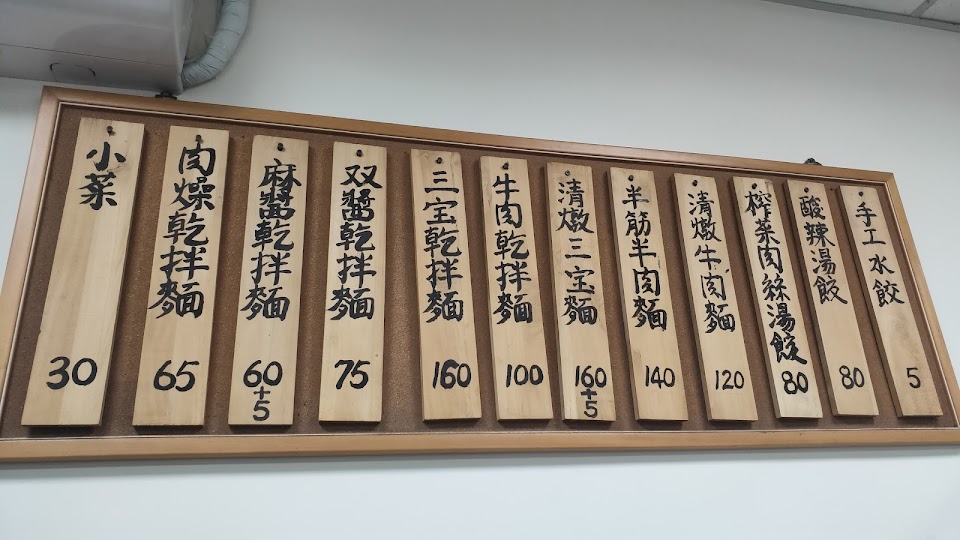 手工水餃 5
酸辣湯餃 80
榨菜肉絲湯餃 80
清燉牛肉麵 120
半筋半肉麵 140
清燉三宝麵 160+5
牛肉乾拌麵 100
三宝乾拌麵 160
双醬乾拌麵 75
麻醬乾拌麵 60+5
肉燥乾拌麵 65
小菜 30